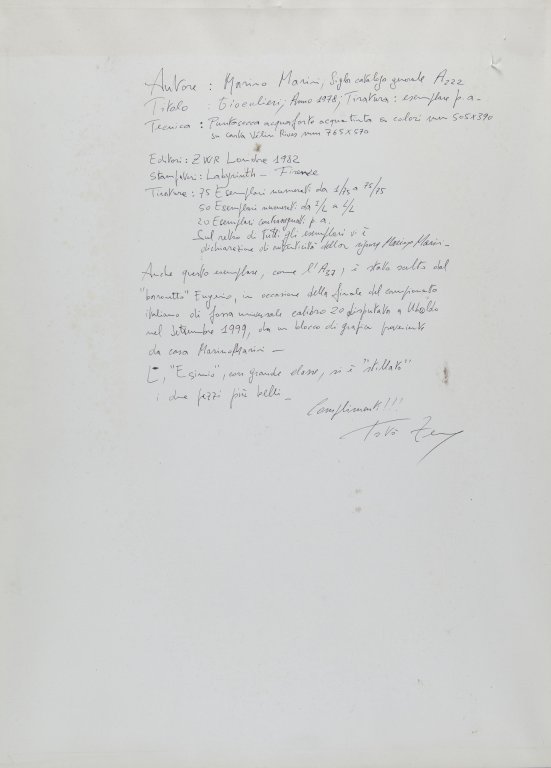 Autore : Marino Marini, Sigla catalogo generale A222
Titolo : Giocolieri; Anno 1978; Tiratura: esemplare p.a.
Tecnica : Puntasecca acquaforte acquatinta a colori mm 505x390
su carta Velin Rives mm 765x570
Editori: ZWR Londra 1982
Stampatori: Labyrinth - Firenze
Tirature: 75 Esemplari numerati da 1/75 a 75/75
50 Esemplari numerati da I/L a L/L
20 Esemplari contrassegnati p.a.
Sul retro di tutti gli esemplari vi è
dichiarazione di autenticità della signora Marina Marini -
Anche questo esemplare, come l'A37, è stato scelto dal
"baronetto" Eugenio, in occasione della finale del campionato
italiano di fossa universale calibro 20 disputato a Uboldo
nel Settembre 1999, da un blocco di grafica proveniente
da casa Marino Marini -
E, "Esimio", con grande classe, si è "stillato"
i due pezzi più belli -
Complimenti!!!